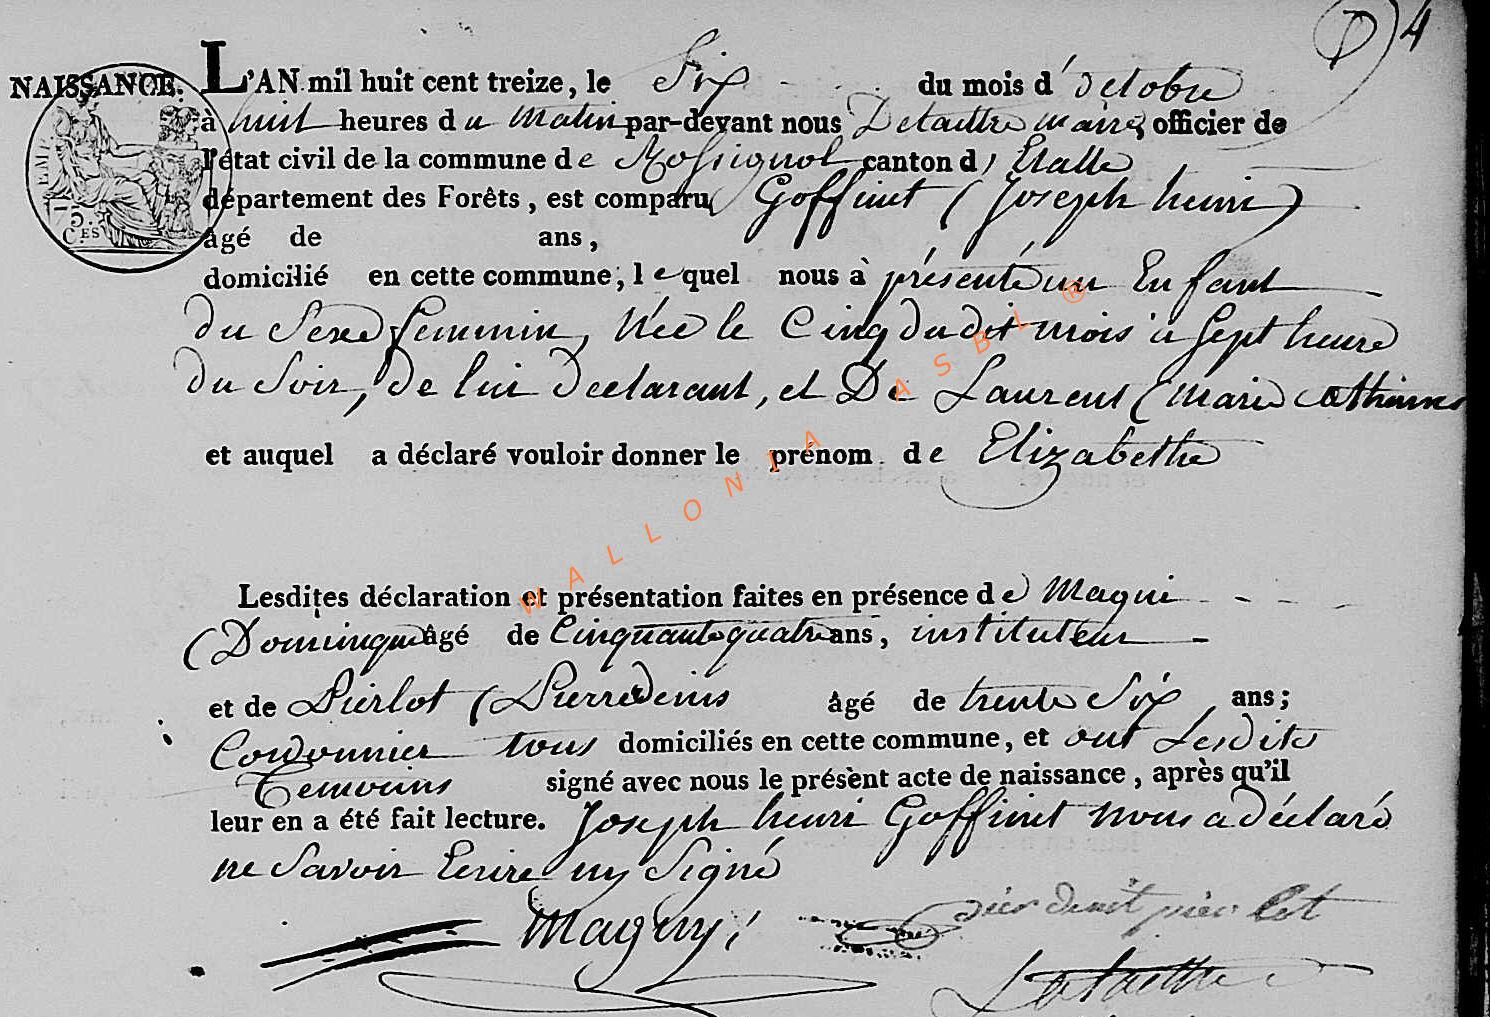 D 4
NAISSANCE. L'AN mil huit cent treize, le Six du mois d'octobre
à huit heures du Matin par-devant nous Detaittre maire, officier de
l'état civil de la commune de Rossignol canton d'Etalle
département des Forêts, est comparu Goffinet (Joseph henri)
âgé de ans,
domicilié en cette commune, lequel nous à présenté un Enfant
du Sexe femmin, Née le Cinq du dit mois à Sept heure
du Soir, de lui Declarant, et De Laurent (Marie Catherinne
et auquel a déclaré vouloir donner le prénom de Elizabethe
Lesdites déclaration et présentation faites en présence de Magni
(Dominique âgé de Cinquante quatre ans, instituteur
et de Pierlot (Pierre denis âgé de trente Six ans;
Cordonnier tous domiciliés en cette commune, et ont Lesdites
Temoins signé avec nous le présent acte de naissance, après qu'il
leur en a été fait lecture. Joseph henri Goffinet nous a déclaré
ne Savoir Ecrire ny Signé
Magny
5.
C.ES
WALLONIA ASBL ®